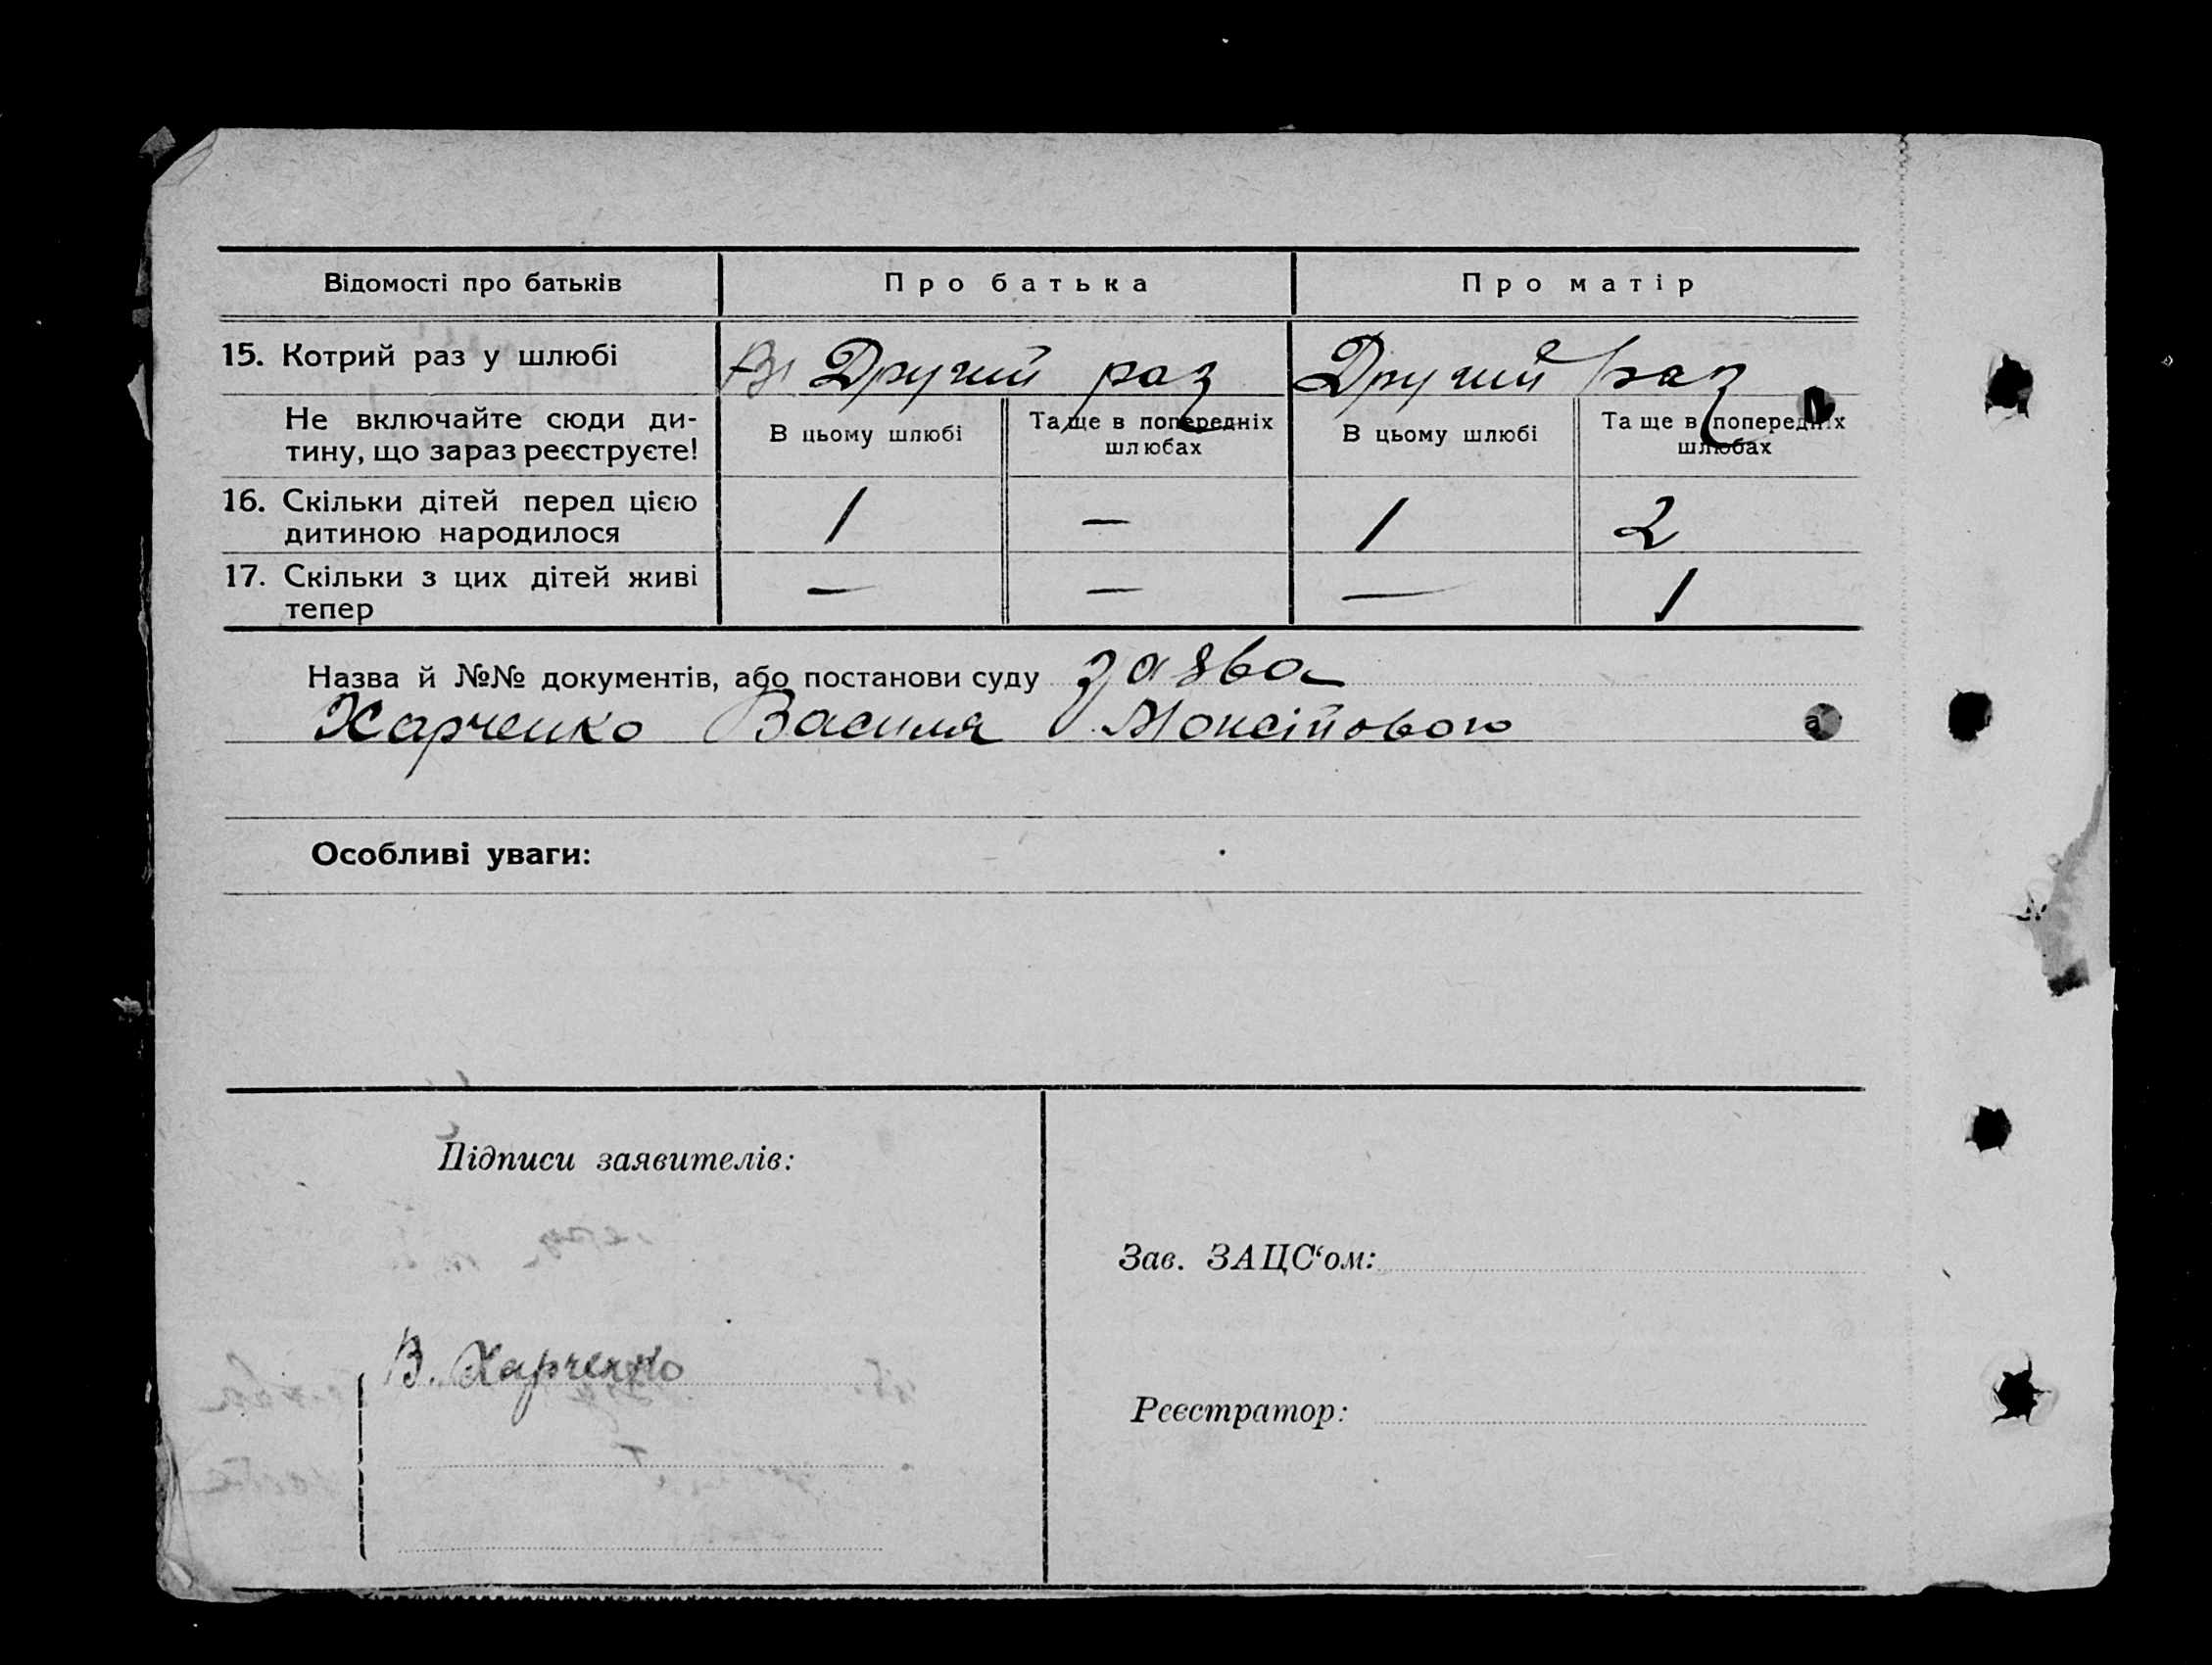 Відомості про батьків Про батька Про матір
15. Котрий раз у шлюбі Другий раз Другий раз
Не включайте сюди ди-
тину, що зараз реєструєте!
В цьому шлюбі Та ще в попередніх
шлюбах
В цьому шлюбі Та ще в попередніх
шлюбах
16. Скільки дітей перед цією
дитиною народилося
1 — 1 2
17. Скільки з цих дітей живі
тепер
— — — 1
Назва й №№ документів, або постанови суду заява
Харченко Василя
Особливі уваги:
Підписи заявителів:
Зав. ЗАЦС‘ом:
В. Харченко
Реєстратор: